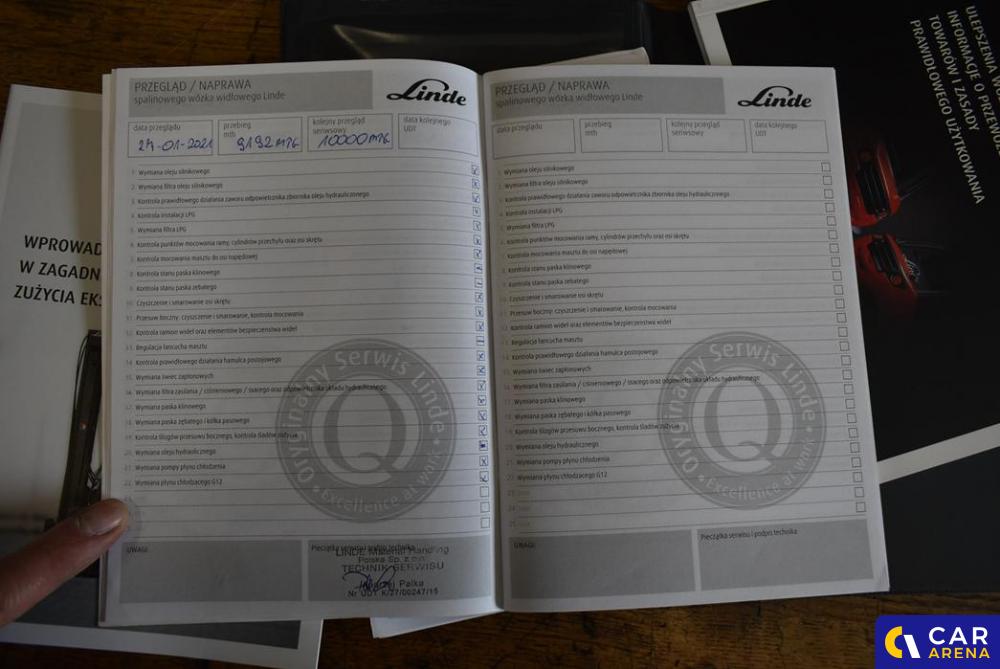 ULEPSZENIA
INFORMACJE O PRZEWOZIE
TOWARÓW I ZASADY
PRAWIDŁOWEGO UŻYTKOWANIA
WPROWAD
W ZAGADN
ZUŻYCIA EKS
PRZEGLĄD / NAPRAWA
spalinowego wózka widłowego Linde
Linde
data przeglądu
27-01-2021
przebieg
mth
9192 mtg
kolejny przegląd
serwsowy
10000 mtg
data kolejnego
UDT
1. Wymiana oleju silnikowego
2. Wymiana filtra oleju silnikowego
3. Kontrola prawidłowego działania zaworu odpowietrznika zbiornika oleju hydraulicznego
4. Kontrola instalacji LPG
5. Wymiana filtra LPG
6. Kontrola punktów mocowania ramy, cylindrów przechyłu oraz osi skrętu
7. Kontrola mocowania masztu do osi napędowej
8. Kontrola stanu paska klinowego
9. Kontrola stanu paska zębatego
10. Czyszczenie i smarowanie osi skrętu
11. Przesuw boczny: czyszczenie i smarowanie, kontrola mocowania
12. Kontrola ramion wideł oraz elementów bezpieczeństwa wideł
13. Regulacja łańcucha masztu
14. Kontrola prawidłowego działania hamulca postojowego
15. Wymiana świec zapłonowych
16. Wymiana filtra zasilania / ciśnieniowego / ssącego oraz odpowietrznika układu hydraulicznego
17. Wymiana paska klinowego
18. Wymiana paska zębatego i kółka pasowego
19. Kontrola ślizgów przesuwu bocznego, kontrola śladów zużycia
20. Wymiana oleju hydraulicznego
21. Wymiana pompy płynu chłodzenia
22. Wymiana płynu chłodzącego G12
Oryginalny Serwis Linde
Q
Excellence at work
UWAGI
Pieczątka serwisu i podpis technika
LINDE Material Handling
Polska Sp. z o.o.
TECHNIK SERWISU
Andrzej Palka
Nr UDT K/27/00247/15
PRZEGLĄD / NAPRAWA
spalinowego wózka widłowego Linde
Linde
data przeglądu
przebieg
mth
kolejny przegląd
serwsowy
data kolejnego
UDT
1. Wymiana oleju silnikowego
2. Wymiana filtra oleju silnikowego
3. Kontrola prawidłowego działania zaworu odpowietrznika zbiornika oleju hydraulicznego
4. Kontrola instalacji LPG
5. Wymiana filtra LPG
6. Kontrola punktów mocowania ramy, cylindrów przechyłu oraz osi skrętu
7. Kontrola mocowania masztu do osi napędowej
8. Kontrola stanu paska klinowego
9. Kontrola stanu paska zębatego
10. Czyszczenie i smarowanie osi skrętu
11. Przesuw boczny: czyszczenie i smarowanie, kontrola mocowania
12. Kontrola ramion wideł oraz elementów bezpieczeństwa wideł
13. Regulacja łańcucha masztu
14. Kontrola prawidłowego działania hamulca postojowego
15. Wymiana świec zapłonowych
16. Wymiana filtra zasilania / ciśnieniowego / ssącego oraz odpowietrznika układu hydraulicznego
17. Wymiana paska klinowego
18. Wymiana paska zębatego i kółka pasowego
19. Kontrola ślizgów przesuwu bocznego, kontrola śladów zużycia
20. Wymiana oleju hydraulicznego
21. Wymiana pompy płynu chłodzenia
22. Wymiana płynu chłodzącego G12
23.
24.
25.
Oryginalny Serwis Linde
Q
Excellence at work
UWAGI
Pieczątka serwisu i podpis technika
CAR
ARENA